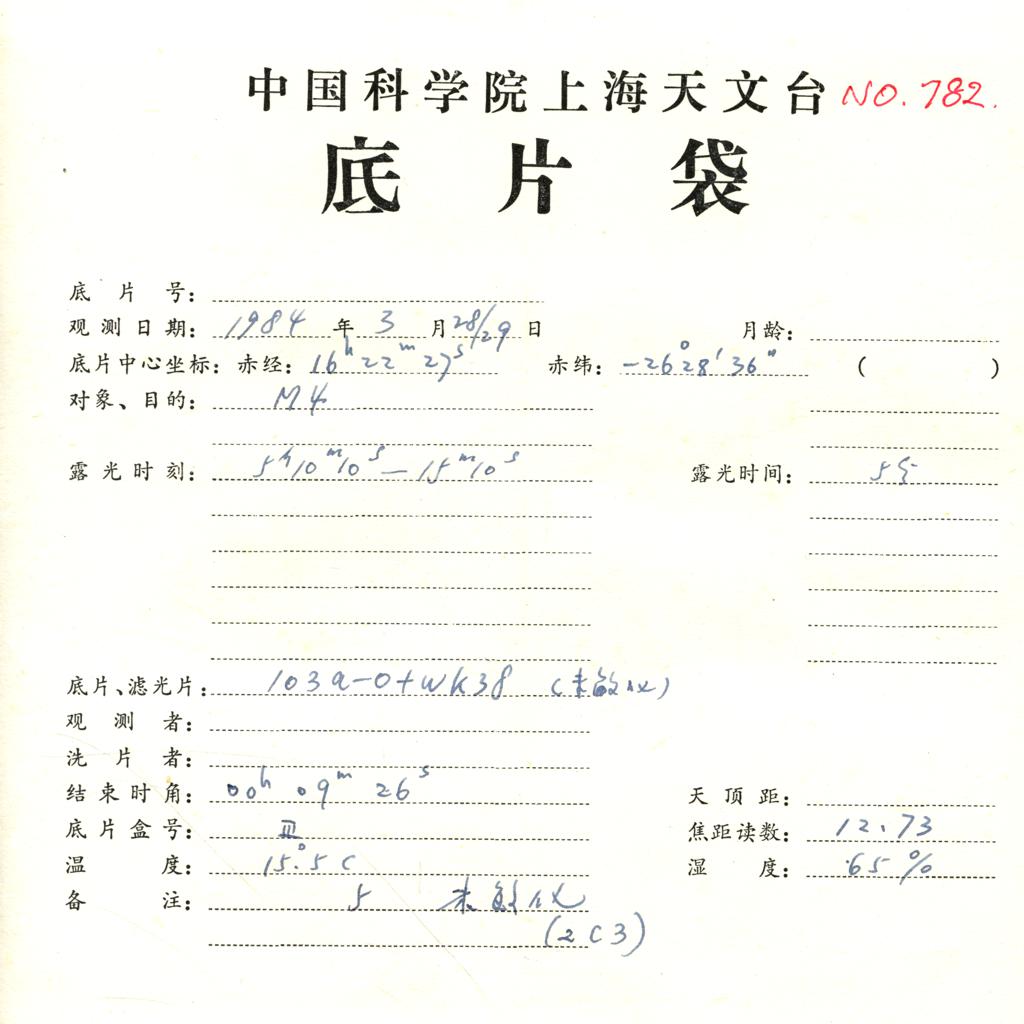 中国科学院上海天文台 NO. 782.
底片袋
底片号：
观测日期： 1984 年 3 月 28/29 日 月龄：
底片中心坐标：赤经： 16h 22m 27s 赤纬： -26°28′36″ ( )
对象、目的： M4
露光时刻： 5h10m10s — 15m10s 露光时间： 5分
底片、滤光片： 103a-O+WK38 (未敏化)
观测者：
洗片者：
结束时角： 00h 09m 26s 天顶距：
底片盒号： III 焦距读数： 12.73
温度： 15°.5C 湿度： 65%
备注： 5 未敏化
(2C3)